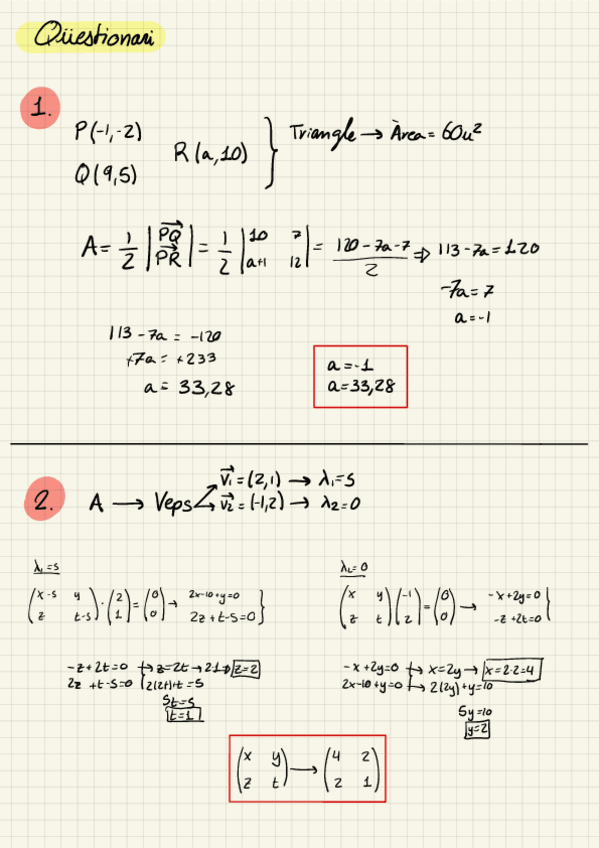 Qüestionari
1.
P(-1,-2)
Q(9,5)
R(a,10)
Triangle → Àrea = 60u²
A = 1/2 |PQ PR| = 1/2 |10 7 a+1 12| = (120-7a-7)/2 ⇒ 113-7a=120
-7a=7
a=-1
113-7a = -120
+7a = +233
a = 33,28
a=-1
a=33,28
2.
A → Veps
v₁=(2,1) → λ₁=5
v₂=(-1,2) → λ₂=0
λ₁=5
(x-5 y z t-5)·(2 1)=(0 0)→
2x-10+y=0
2z+t-5=0
-z+2t=0 → z=2t → 2·1 → z=2
2z+t-5=0 2(2t)+t=5
5t=5
t=1
λ₂=0
(x y z t)(-1 2)=(0 0)→
-x+2y=0
-z+2t=0
-x+2y=0 → x=2y → x=2·2=4
2x-10+y=0 → 2(2y)+y=10
5y=10
y=2
(x y z t) → (4 2 2 1)